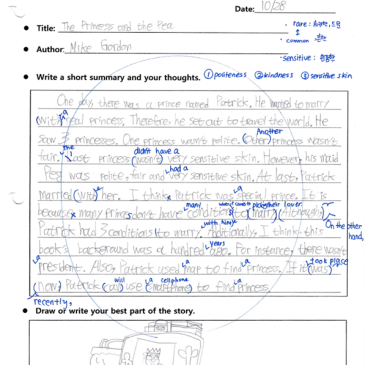 Date: 10/28
Title: The Princess and the Pea
rare: 희귀한, 드문
↕
common 흔한
Author: Mike Gordon
sensitive: 민감한
Write a short summary and your thoughts. ① politeness ② kindness ③ sensitive skin
One day there was a prince named Patrick. He wanted to marry
(with) a real princess. Therefore he set out to travel the world. He
saw 3 princesses. One princess wasn't polite. (Other) Another princess wasn't
fair. the Last princess (wasn't) didn't have a very sensitive skin. However, his maid
Pea was polite, fair and had a very sensitive skin. At last, Patrick
married (with) her. I think Patrick was a special prince. It is
because many princes don't have many conditions when to pick their lover. (marry) (Although)
Patrick had 3 conditions to marry with him. Additionally I think this
On the other hand,
book's background was a hundred years ago. For instance, there wasn't
a president. Also, Patrick used a map to find a princess. If it (was) took place
(now) Patrick (can) will use a (smartphone) cellphone to find a princess.
recently,
Draw or write your best part of the story.